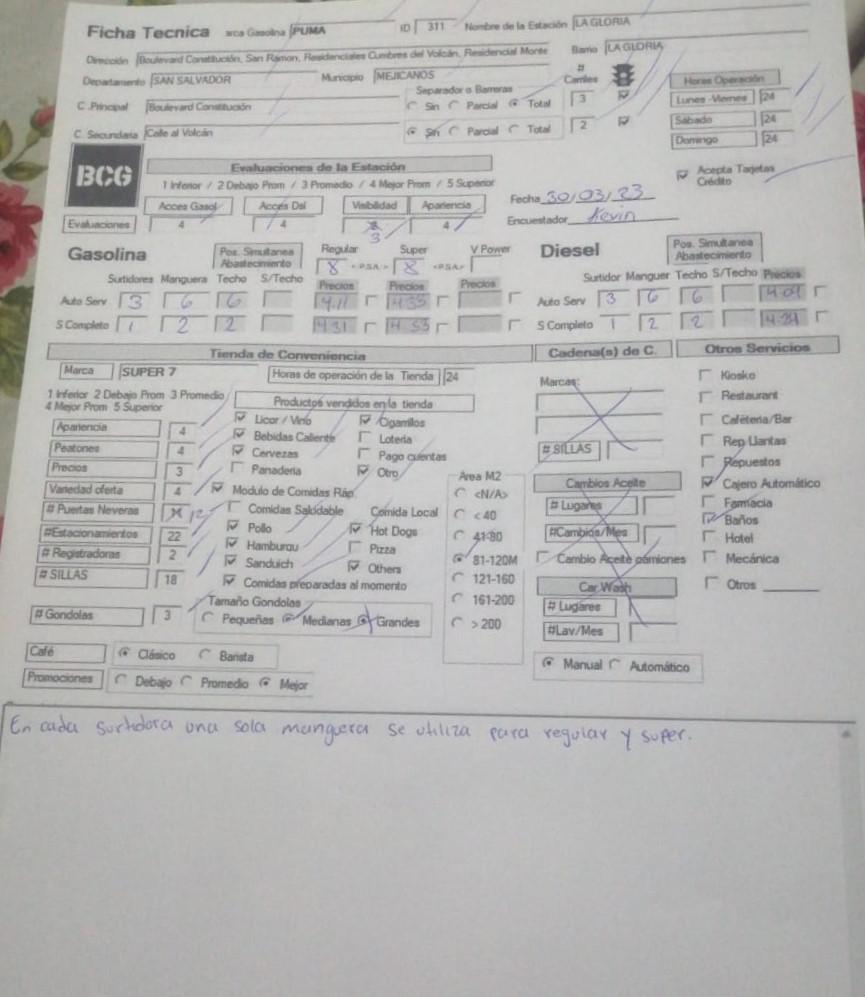 Ficha Tecnica arca Gasolina PUMA ID 311 Nombre de la Estación LA GLORIA
Dirección Boulevard Constitución, San Ramon, Residenciales Cumbres del Volcán, Residencial Monte Barrio LA GLORIA
Departamento SAN SALVADOR Municipio MEJICANOS # Carriles Horas Operación
Separador o Barreras
C .Principal Boulevard Constitución Sin Parcial Total 3 Lunes -Viernes 24
Sábado 24
C. Secundaria Calle al Volcán Sin Parcial Total 2 Domingo 24
BCG Evaluaciones de la Estación Acepta Tarjetas Crédito
1 Inferior / 2 Debajo Prom / 3 Promedio / 4 Mejor Prom / 5 Superior
Acces Gasol Acces Dsl Visibilidad Apariencia Fecha 30/03/23
Evaluaciones 4 4 3 4 Encuestador Kevin
Gasolina Pos. Simultanea Abastecimiento Regular Super V Power Diesel Pos. Simultanea Abastecimiento
8 <-P.S.A.-> 8 <-P.S.A.->
Surtidores Manguera Techo S/Techo Precios Precios Precios Surtidor Manguer Techo S/Techo Precios
Auto Serv 3 6 6 4.11 4.35 Auto Serv 3 6 6 4.04
S Completo 1 2 2 4.31 4.55 S Completo 1 2 2 4.24
Tienda de Conveniencia Cadena(s) de C. Otros Servicios
Marca SUPER 7 Horas de operación de la Tienda 24 Marcas: Kiosko
1 Inferior 2 Debajo Prom 3 Promedio Productos vendidos en la tienda Restaurant
4 Mejor Prom 5 Superior
Apariencia 4 Licor / Vino Cigarrillos Cafetería/Bar
Peatones 4 Bebidas Caliente Loteria # SILLAS Rep Llantas
Precios 3 Cervezas Pago cuentas Repuestos
Panaderia Otro Area M2
Variedad oferta 4 Modulo de Comidas Ráp. <N/A> Cambios Aceite Cajero Automático
# Puertas Neveras 12 Comidas Saludable Comida Local < 40 # Lugares Farmacia
#Estacionamientos 22 Pollo Hot Dogs 41-80 #Cambios/Mes Baños
# Registradoras 2 Hamburgu Pizza 81-120M Cambio Aceite camiones Hotel
# SILLAS 18 Sanduich Others 121-160 Car Wash Mecánica
Comidas preparadas al momento 161-200 # Lugares Otros
Tamaño Gondolas
# Gondolas 3 Pequeñas Medianas Grandes > 200 #Lav/Mes
Café Clásico Barista Manual Automático
Promociones Debajo Promedio Mejor
En cada surtidora una sola manguera se utiliza para regular y super.